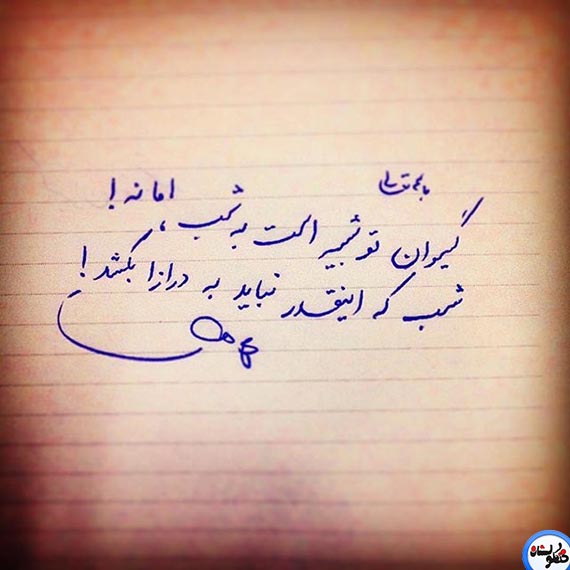 باسمه تعالی
گیسوان تو شبیه است به شب، اما نه!
شب که اینقدر نباید به درازا بکشد!